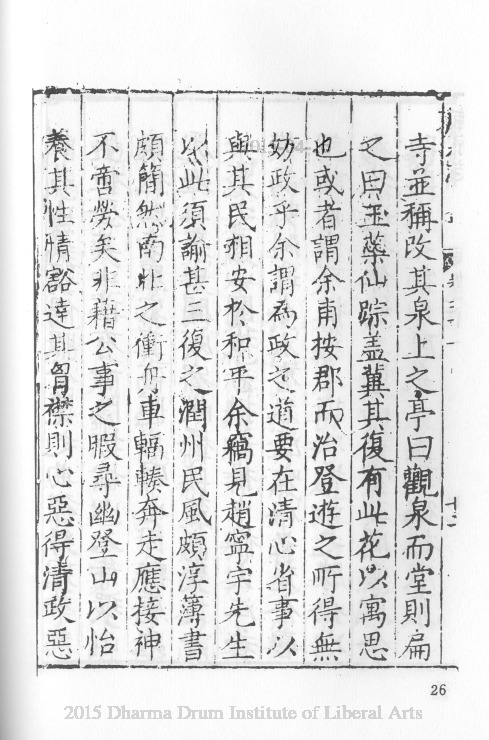 寺並稱改其泉上之亭曰觀泉而堂則扁
之曰玉蘂仙踪盖冀其復有此花以寓思
也或者謂余甫按郡而治登遊之所得無
妨政乎余謂為政之道要在清心省事以
與其民相安於和平余竊見趙寧宇先生
以此須諭甚三復之潤州民風頗淳薄書
頗簡然南北之衝舟車輻輳奔走應接神
不啻勞矣非藉公事之暇尋幽登山以怡
養其性情豁達其胷襟則心惡得清政惡
26
2015 Dharma Drum Institute of Liberal Arts